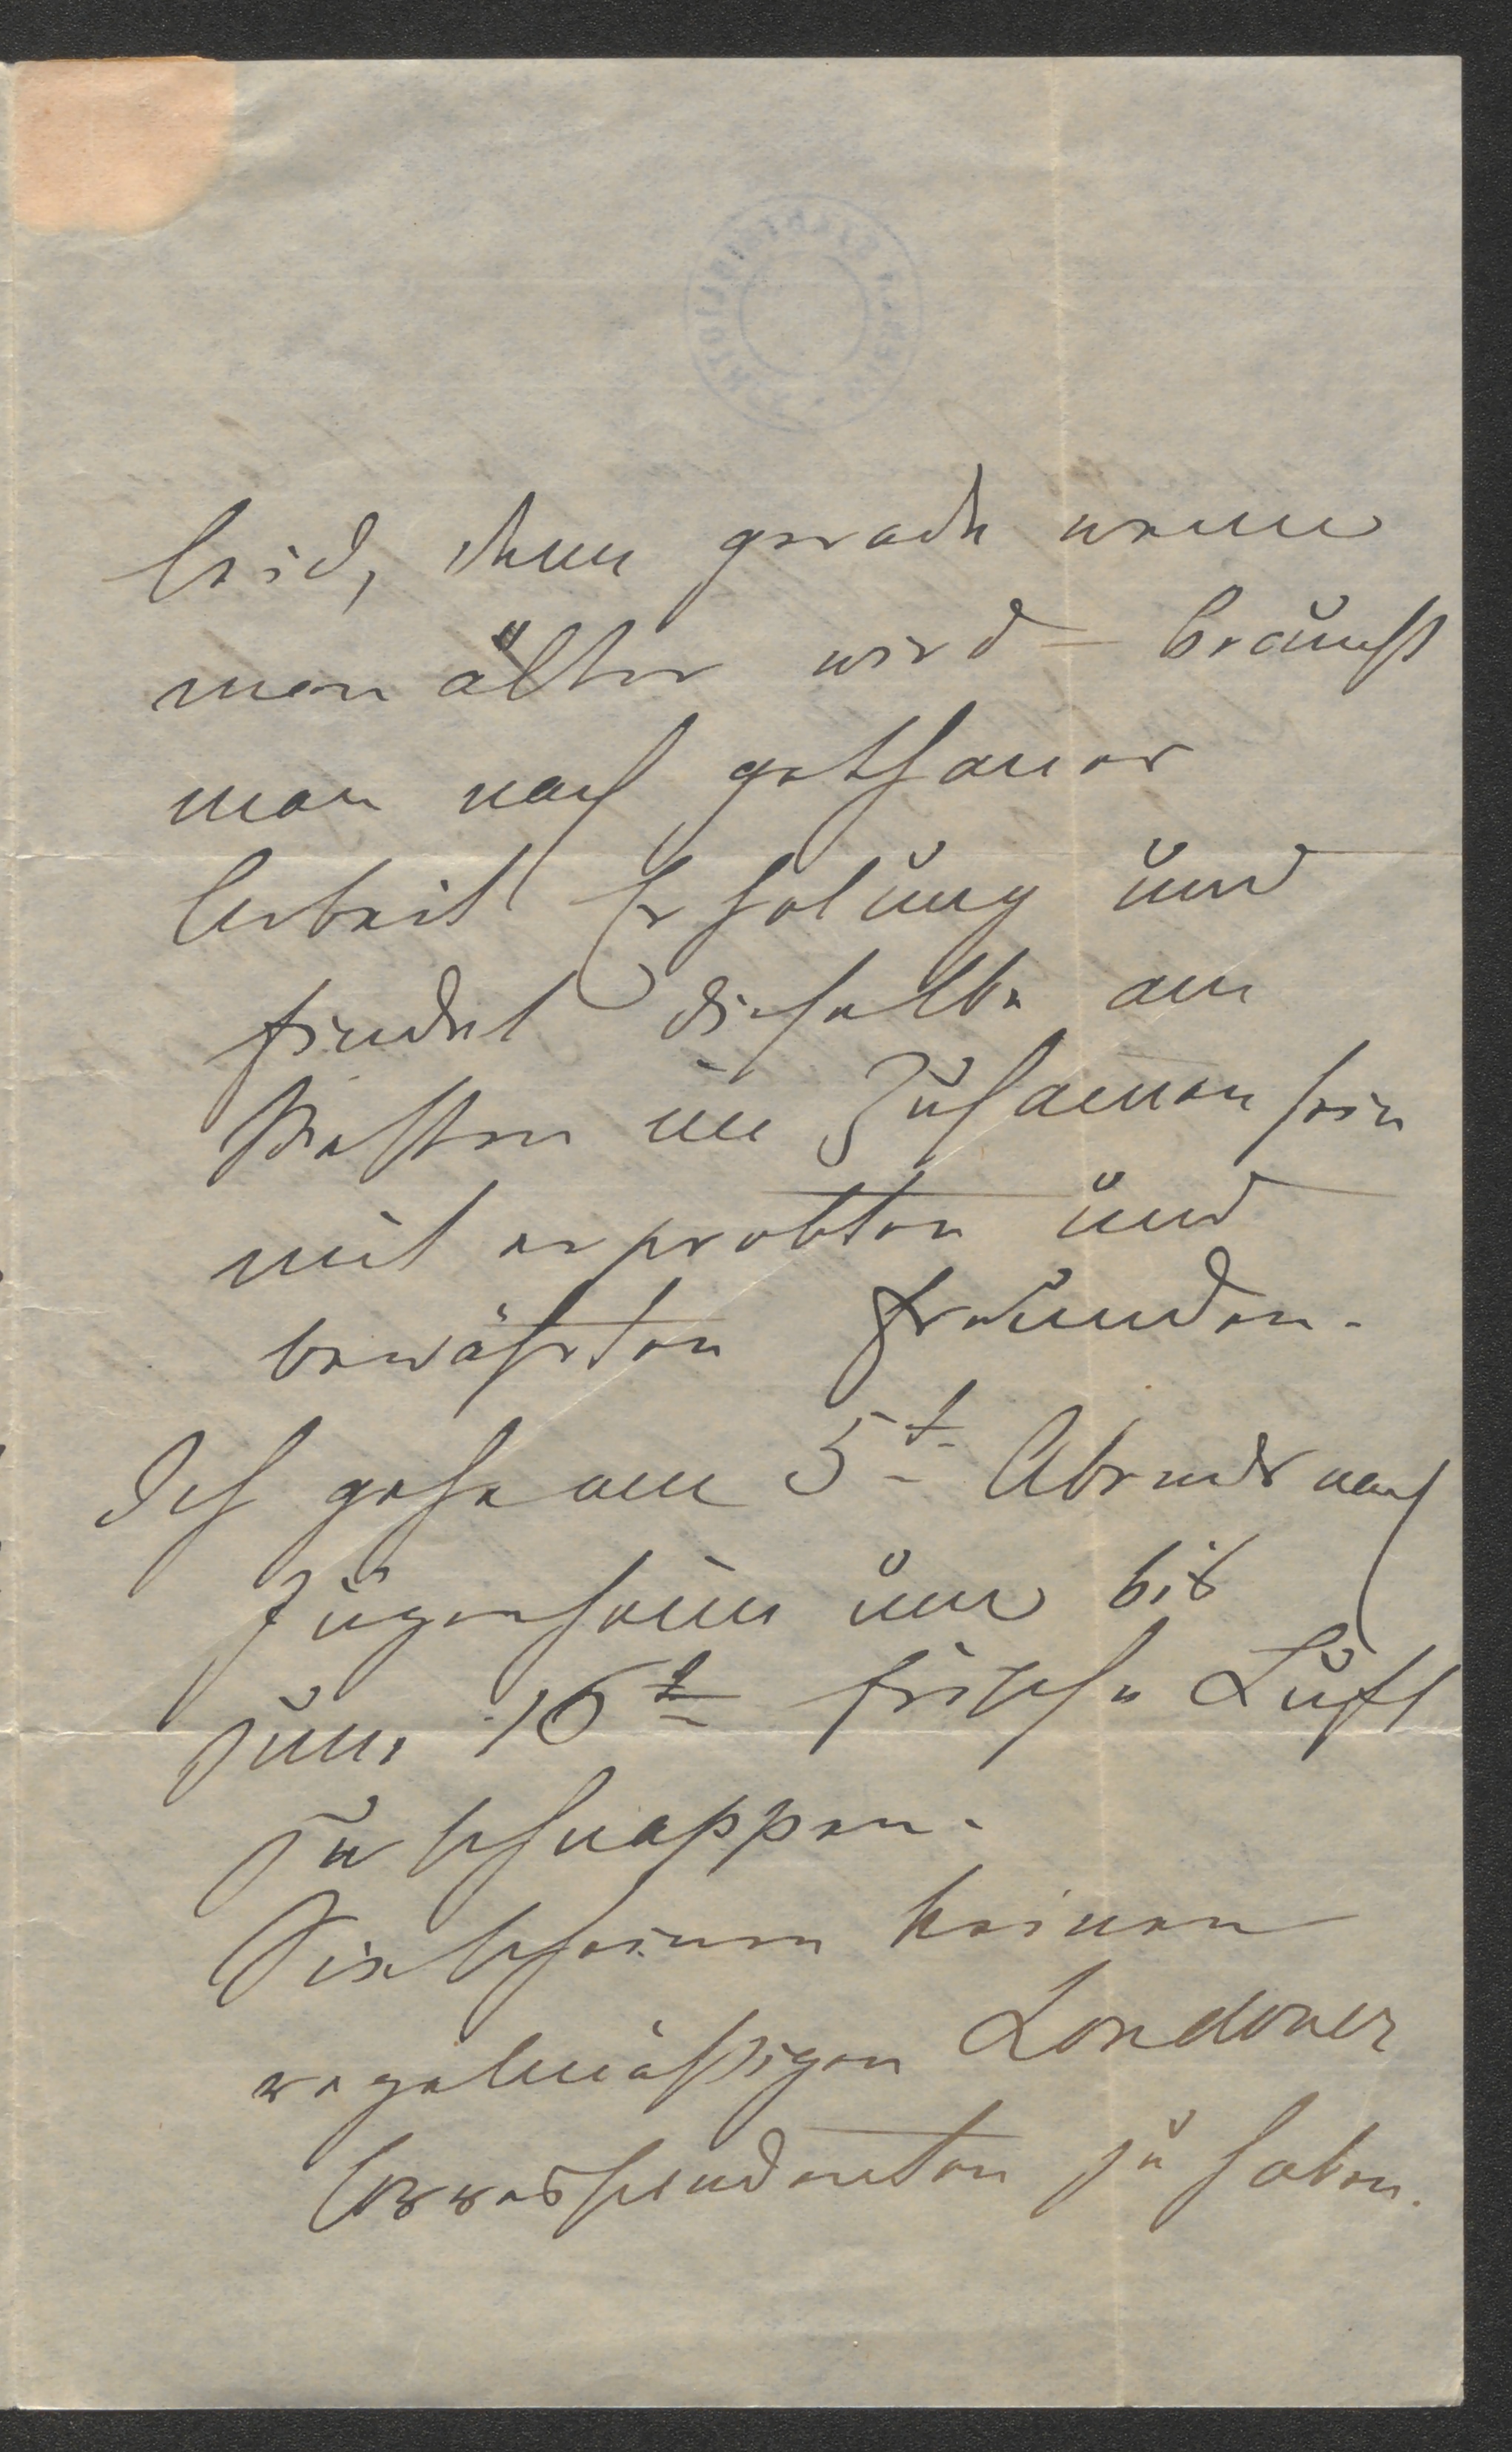 leid, denn gerade wenn
man älter wird – braucht
man nach gethaner
Arbeit Erholung und
findet dieselbe am
Besten im Zusamensein
mit erprobten und
bewährten Freunden.
Ich gehe am 5t. Abends nach
Jugenheim um bis
zum 16t frische Luft
zu schnappen.
Sie scheinen keinen
regelmäßigen Londoner
Correspondenten zu haben.